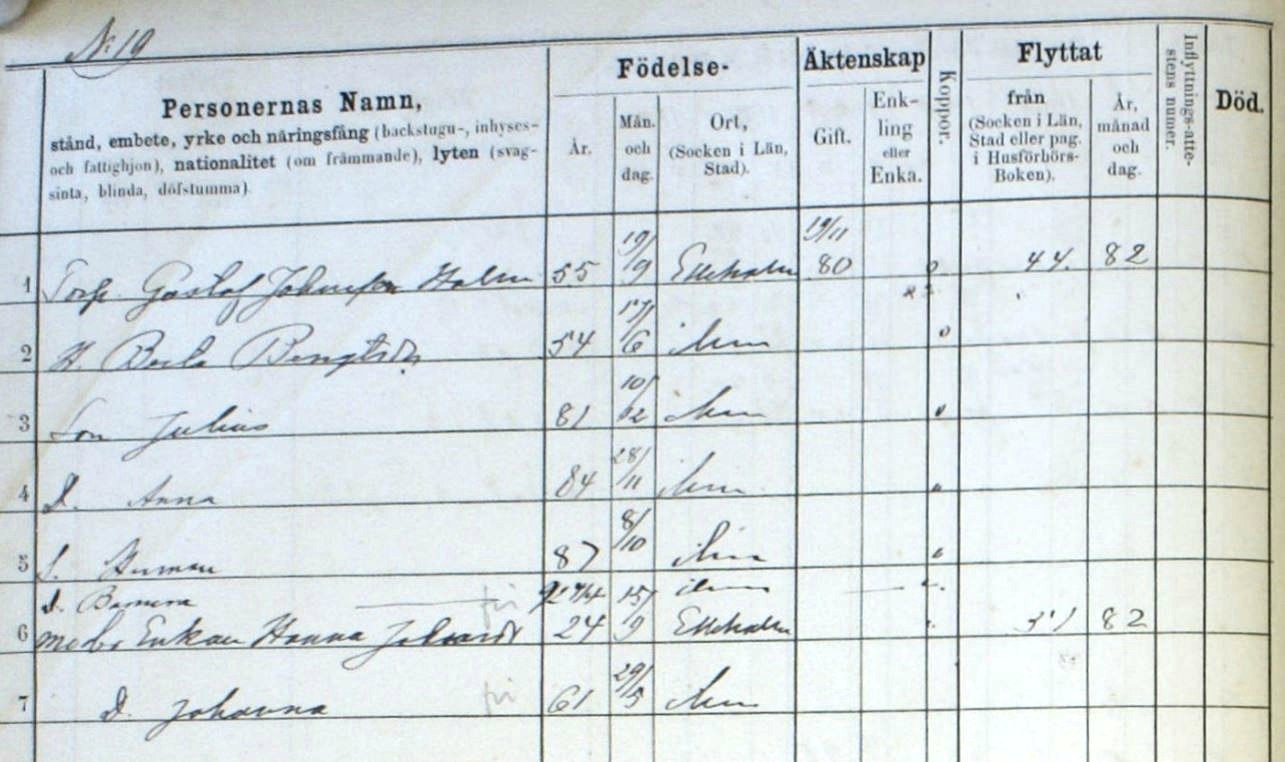 N: 19
Personernas Namn,
stånd, embete, yrke och näringsfång (backstugu-, inhyses-
och fattighjon), nationalitet (om främmande), lyten (svag-
sinta, blinda, döfstumma)
Födelse-
År.
Mån.
och
dag.
Ort,
(Socken i Län,
Stad).
Äktenskap
Gift.
Enk-
ling
eller
Enka.
Koppor.
Flyttat
från
(Socken i Län,
Stad eller pag.
i Husförhörs-
Boken).
År,
månad
och
dag.
Inflyttnings-atte-
stens numer.
Död.
1 Torp. Gustaf Johnsson Holm 55 19/9 Elleholm 19/11 80 44. 82
2 H. Berta Bengtsdr 54 17/6 ibm
3 Son Julius 81 10/12 ibm
4 D. Anna 84 28/11 ibm
5 S. Herman 87 8/10 ibm
D. ibm
6 Enkan Hanna 24 15/9 Elleholm 51 82
7 D. Johanna 61 29/5 ibm